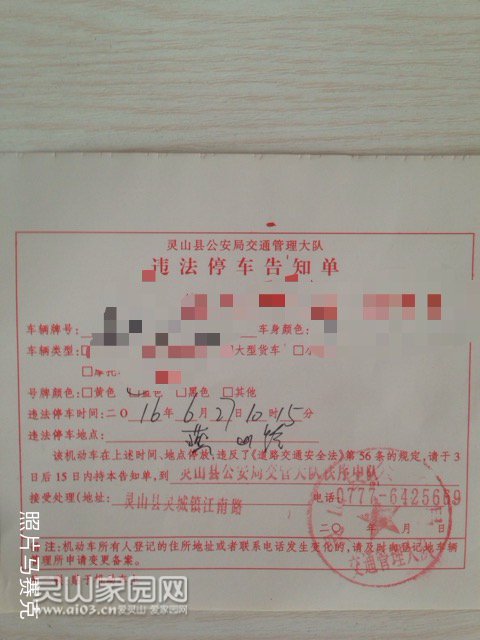 灵山县公安局交通管理大队
违法停车告知单
车辆牌号： 车身颜色：
车辆类型：□ □大型货车 □小
□摩托
号牌颜色：□黄色 □蓝色 □黑色 □其他
违法停车时间：二〇16年6月27日10时15分
违法停车地点：
该机动车在上述时间、地点停放，违反了《道路交通安全法》第56条的规定，请于3
日后15日内持本告知单，到灵山县公安局交管大队秩序中队
接受处理(地址：灵山县灵城镇江南路 电话0777-6425659
二〇 年 月 日
交通管理大队
注：机动车所有人登记的住所地址或者联系电话发生变化的，请及时向登记地车辆
管理所申请变更备案。
照片马赛克
灵山家园网
www.ai03.cn 爱灵山·爱家园网